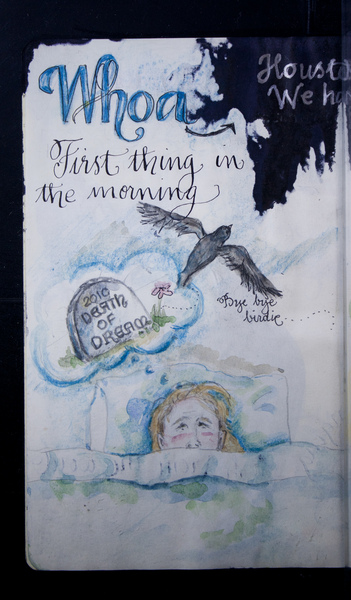 Whoa
Housto
We ha
First thing in
the morning
2010
DEATH
OF
DREAM
Bye bye
birdie